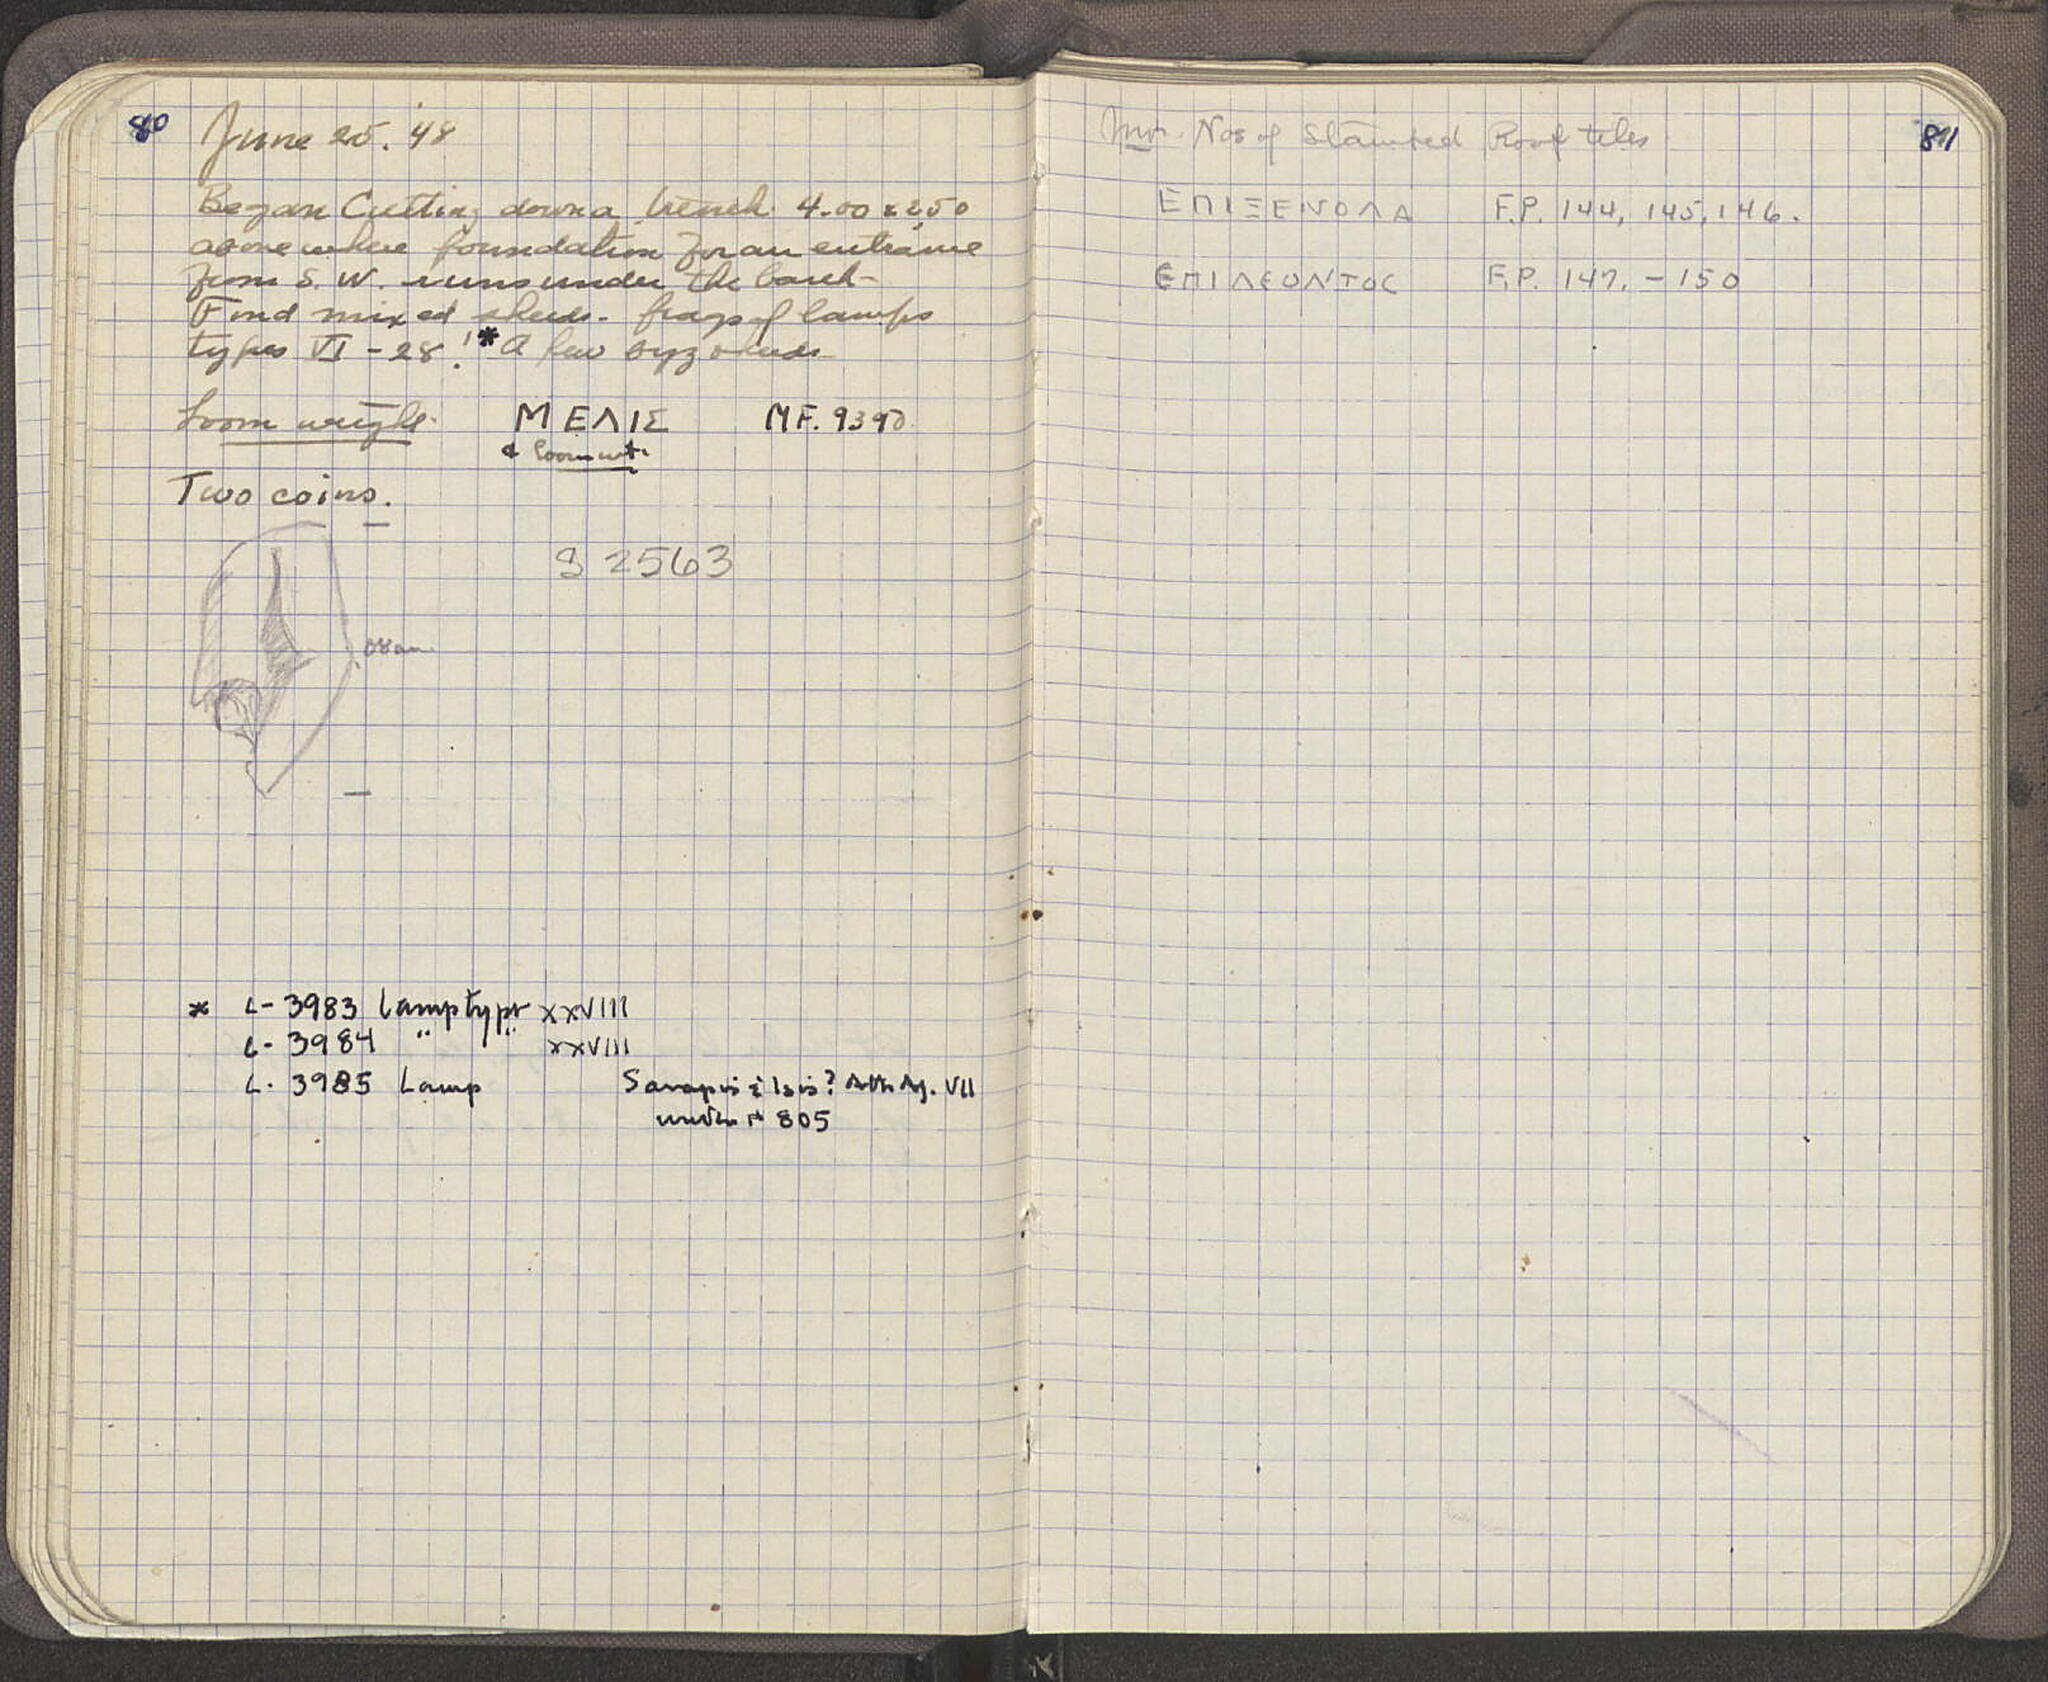 80
June 25. '48
Began Cutting down a trench 4.00 x 2.50
above where foundation for an entrance
from S. W. runs under the bank -
Find mixed sherds - frags of lamps
types VI - 28!* A few byz sherds
Loom weight. ΜΕΛΙΣ MF. 9390
Loom wt.
Two coins.
S 2563
* L- 3983 Lamp type XXVIII
L- 3984 " " XXVIII
L. 3985 Lamp Sarapis & Isis? Ath Ag. VII
under # 805
81
Inv. Nos of Stamped Roof tiles
ΕΠΙΞΕΝΟΛΑ F.P. 144, 145, 146.
ЄΠΙΛΕΟΝΤΟC F.P. 147. - 150